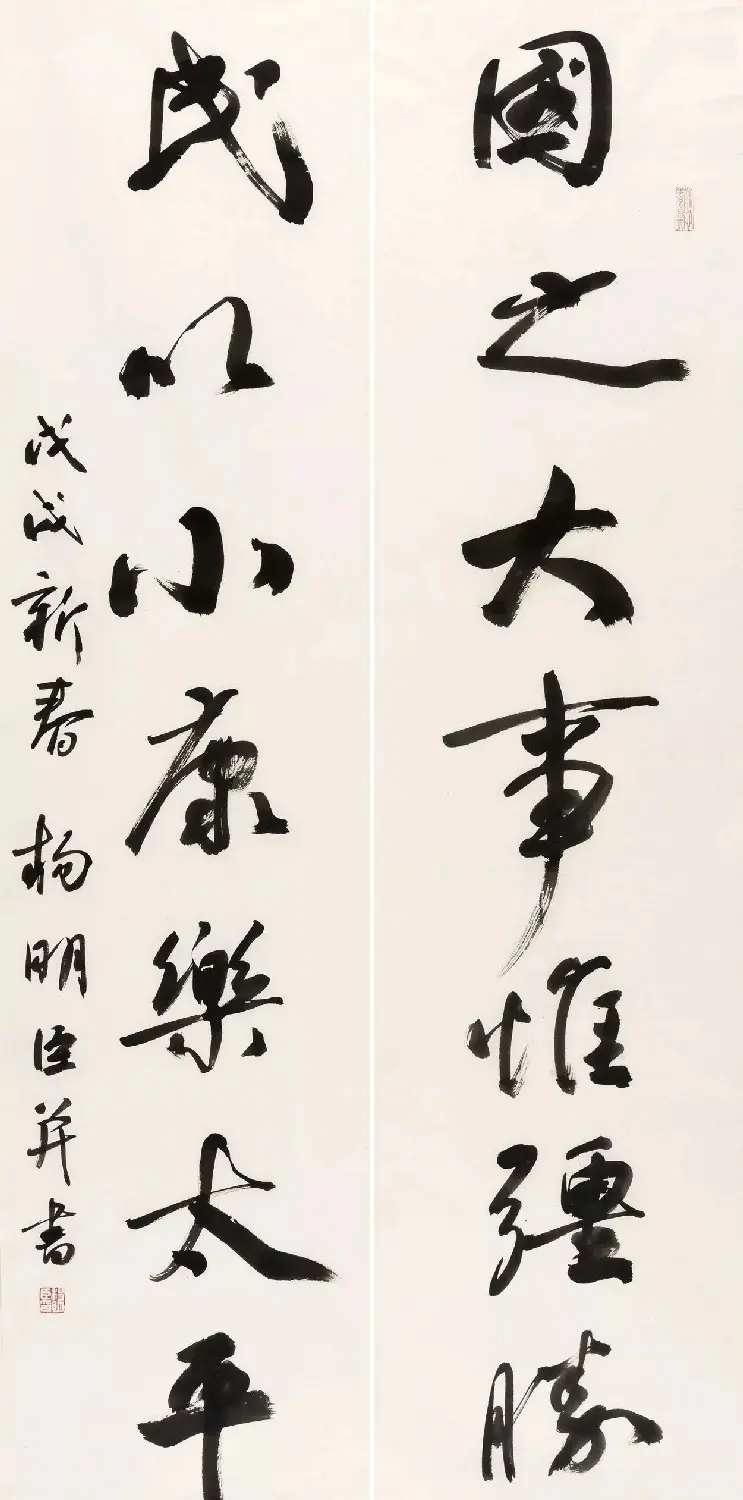 國之大事惟彊勝
民以小康樂太平
戊戌新春 楊明臣并書